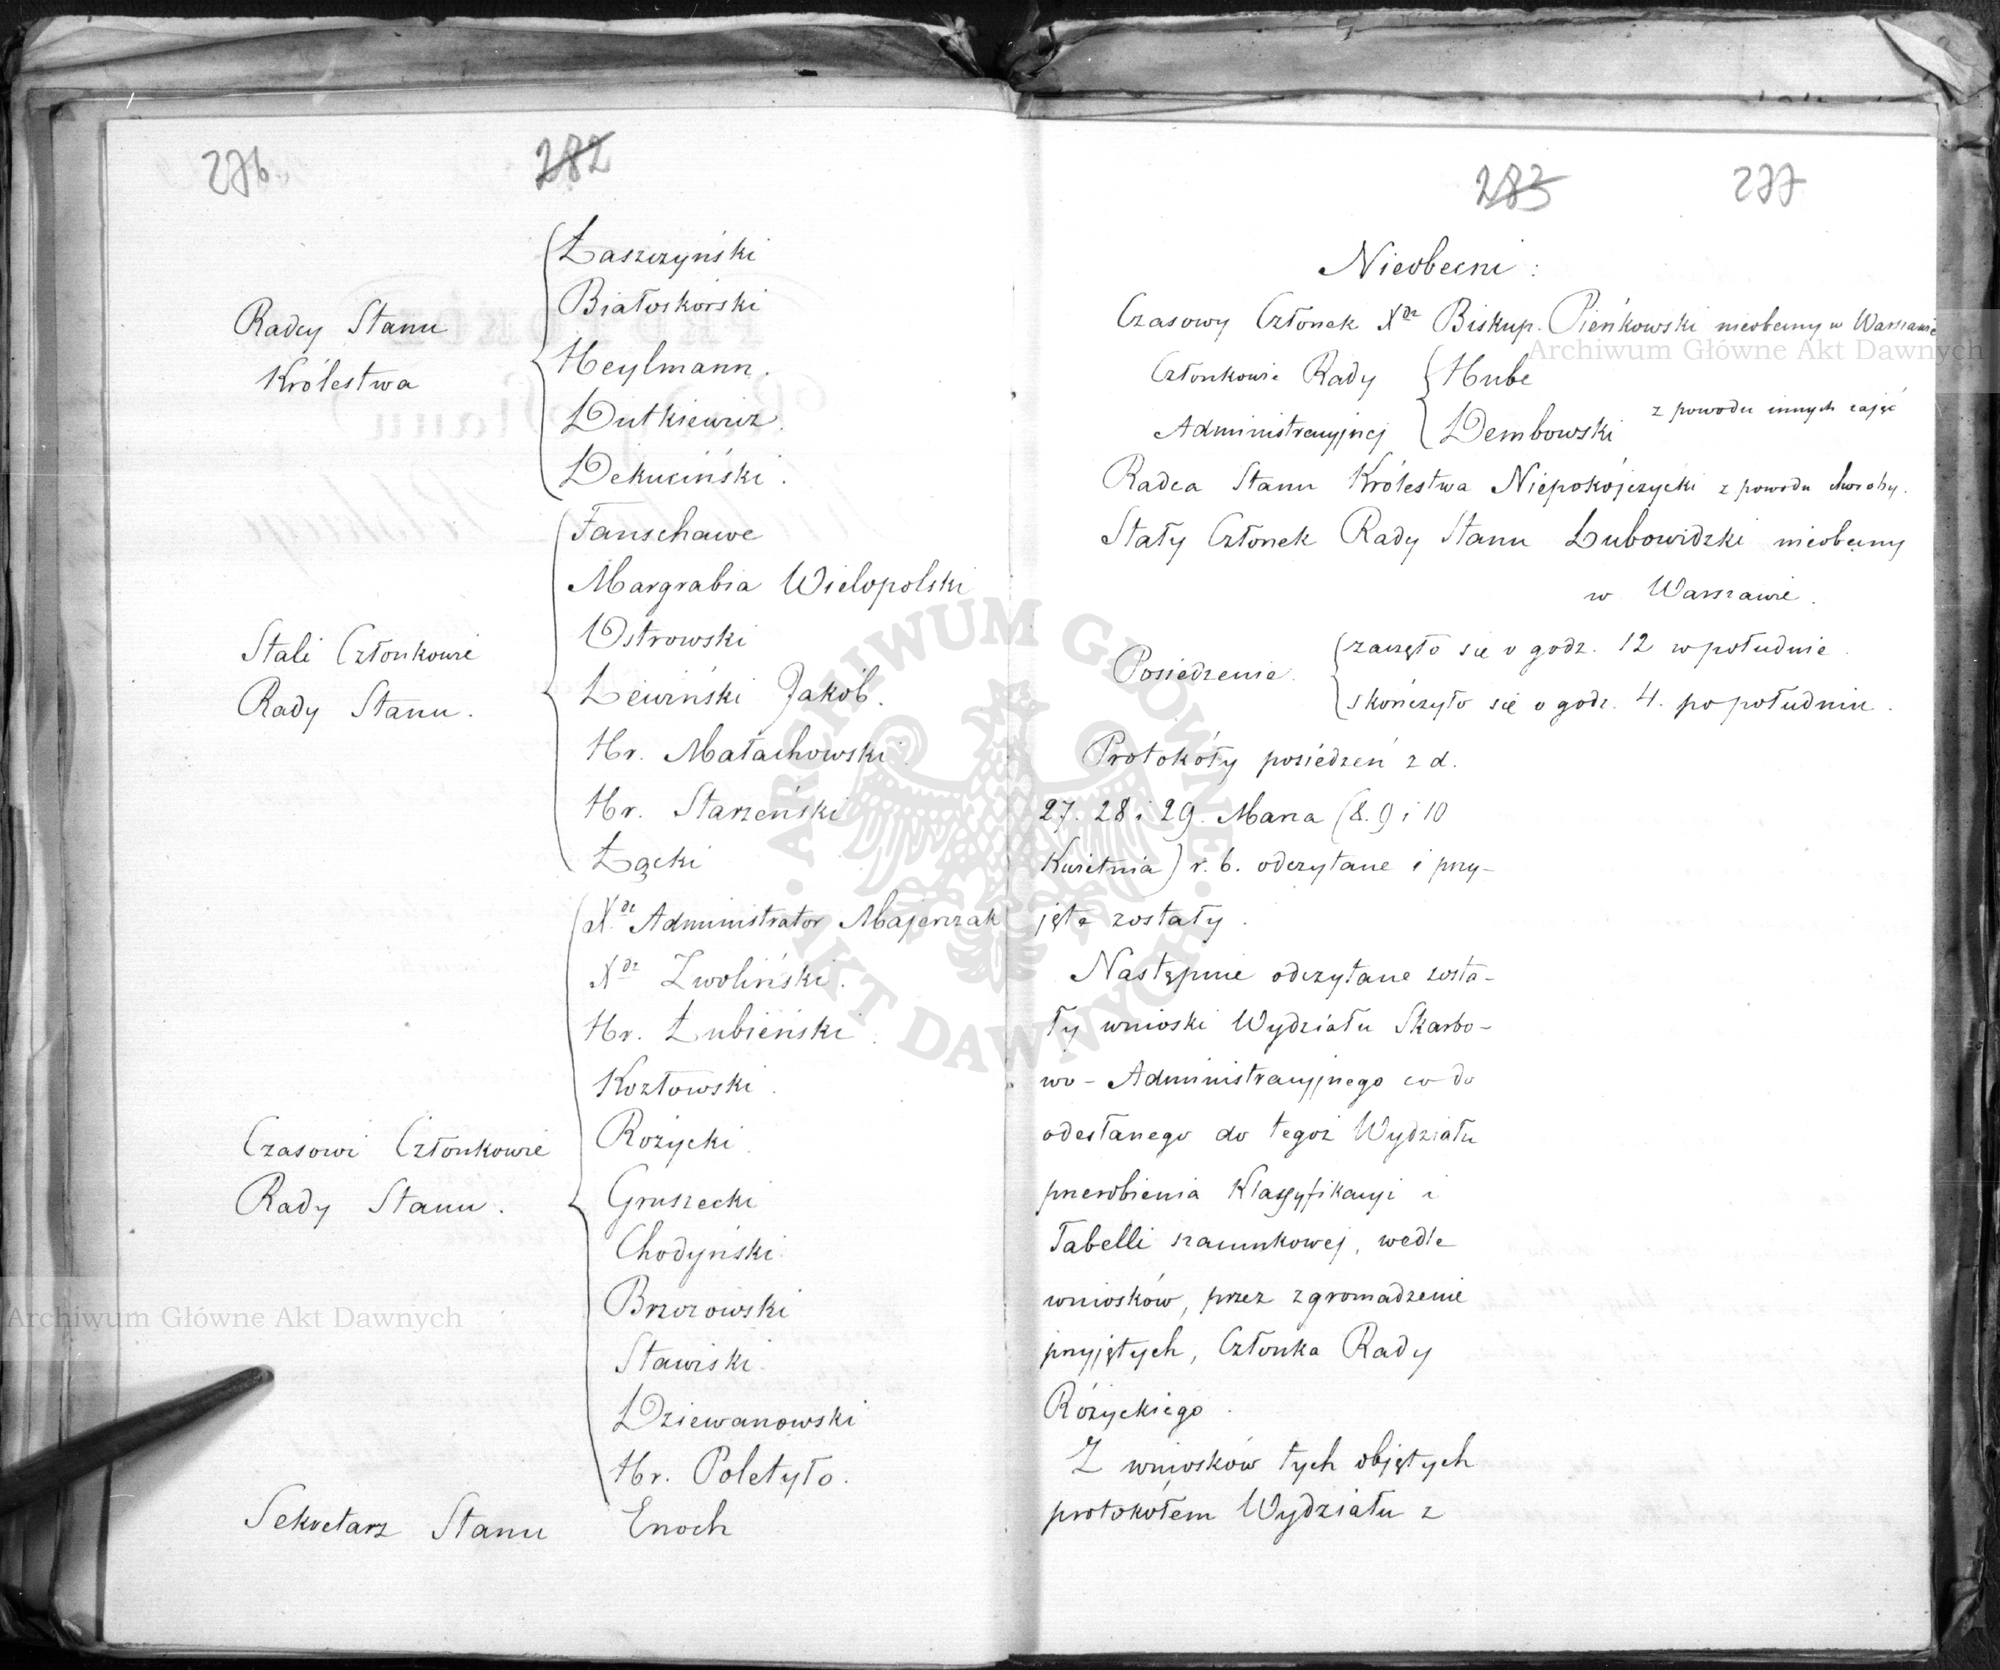 276
282
Radcy Stanu
Królestwa
Łaszczyński
Białoskórski
Heylmann.
Dutkiewicz.
Dekuciński.
Stali Członkowie
Rady Stanu.
Fanschawe
Margrabia Wielopolski
Ostrowski
Lewiński Jakób.
Hr. Małachowski.
Hr. Starzeński
Łącki
Czasowi Członkowie
Rady Stanu.
Xdz Administrator Majerczak
Xdz Zwoliński.
Hr. Łubieński.
Kozłowski.
Rożycki.
Gruszecki
Chodyński.
Brzozowski
Stawiski.
Dziewanowski
Hr. Poletyło.
Sekretarz Stanu Enoch
283
277
Nieobecni:
Czasowy Członek Xdz Biskup. Pieńkowski nieobecny w Warszawie
Członkowie Rady
Administracyjnej
Hube
Dembowski
z powodu innych zajęć
Radca Stanu Królestwa Niepokójczycki z powodu choroby.
Stały Członek Rady Stanu Lubowidzki nieobecny
w Warszawie.
Posiedzenie.
zaczęto się o godz. 12 w południe.
skończyło się o godz. 4. po południu.
Protokóły posiedzeń z d.
27. 28 i 29. Marca (8. 9 i 10
Kwietnia) r. b. odczytane i przy-
jęte zostały.
Następnie odczytane zosta-
ły wnioski Wydziału Skarbo-
wo-Administracyjnego co do
odesłanego do tegoż Wydziału
przerobienia Klassyfikacyi i
Tabelli szacunkowej, wedle
wniosków, przez zgromadzenie
przyjętych, Członka Rady
Różyckiego.
Z wniosków tych objętych
protokółem Wydziału z
Archiwum Główne Akt Dawnych
Archiwum Główne Akt Dawnych
ARCHIWUM GŁÓWNE
AKT DAWNYCH